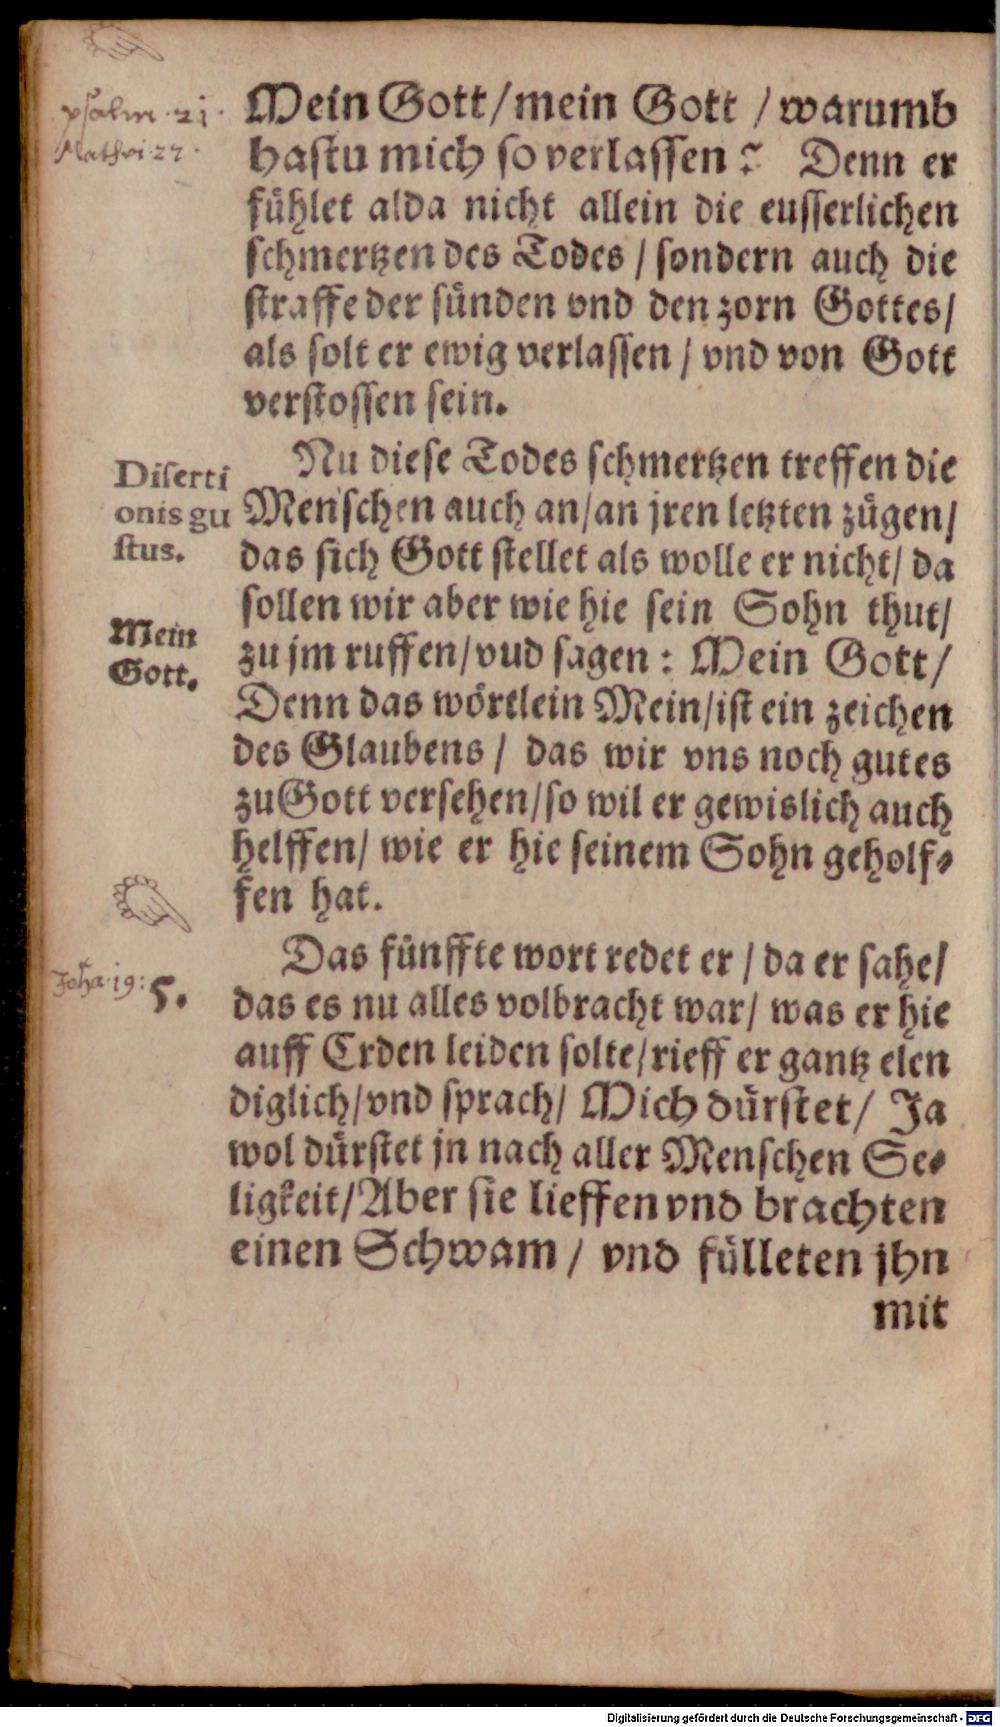 psalm. 21.
Mathei. 27.
Mein Gott/mein Gott / warumb
hastu mich so verlassen? Denn er
fühlet alda nicht allein die eusserlichen
schmertzen des Todes / sondern auch die
straffe der sünden vnd den zorn Gottes/
als solt er ewig verlassen / vnd von Gott
verstossen sein.
Diserti
onis gu
stus.
Mein
Gott.
Nu diese Todes schmertzen treffen die
Menschen auch an/an jren letzten zügen/
das sich Gott stellet als wolle er nicht/ da
sollen wir aber wie hie sein Sohn thut/
zu jm ruffen/vud sagen: Mein Gott/
Denn das wörtlein Mein/ist ein zeichen
des Glaubens / das wir vns noch gutes
zu Gott versehen/so wil er gewislich auch
helffen/ wie er hie seinem Sohn geholf-
fen hat.
Joha. 19:
5.
Das fünffte wort redet er / da er sahe/
das es nu alles volbracht war/ was er hie
auff Erden leiden solte/rieff er gantz elen
diglich/vnd sprach/ Mich dürstet/ Ja
wol dürstet jn nach aller Menschen Se-
ligkeit/Aber sie lieffen vnd brachten
einen Schwam / vnd fülleten jhn
mit
Digitalisierung gefördert durch die Deutsche Forschungsgemeinschaft - DFG